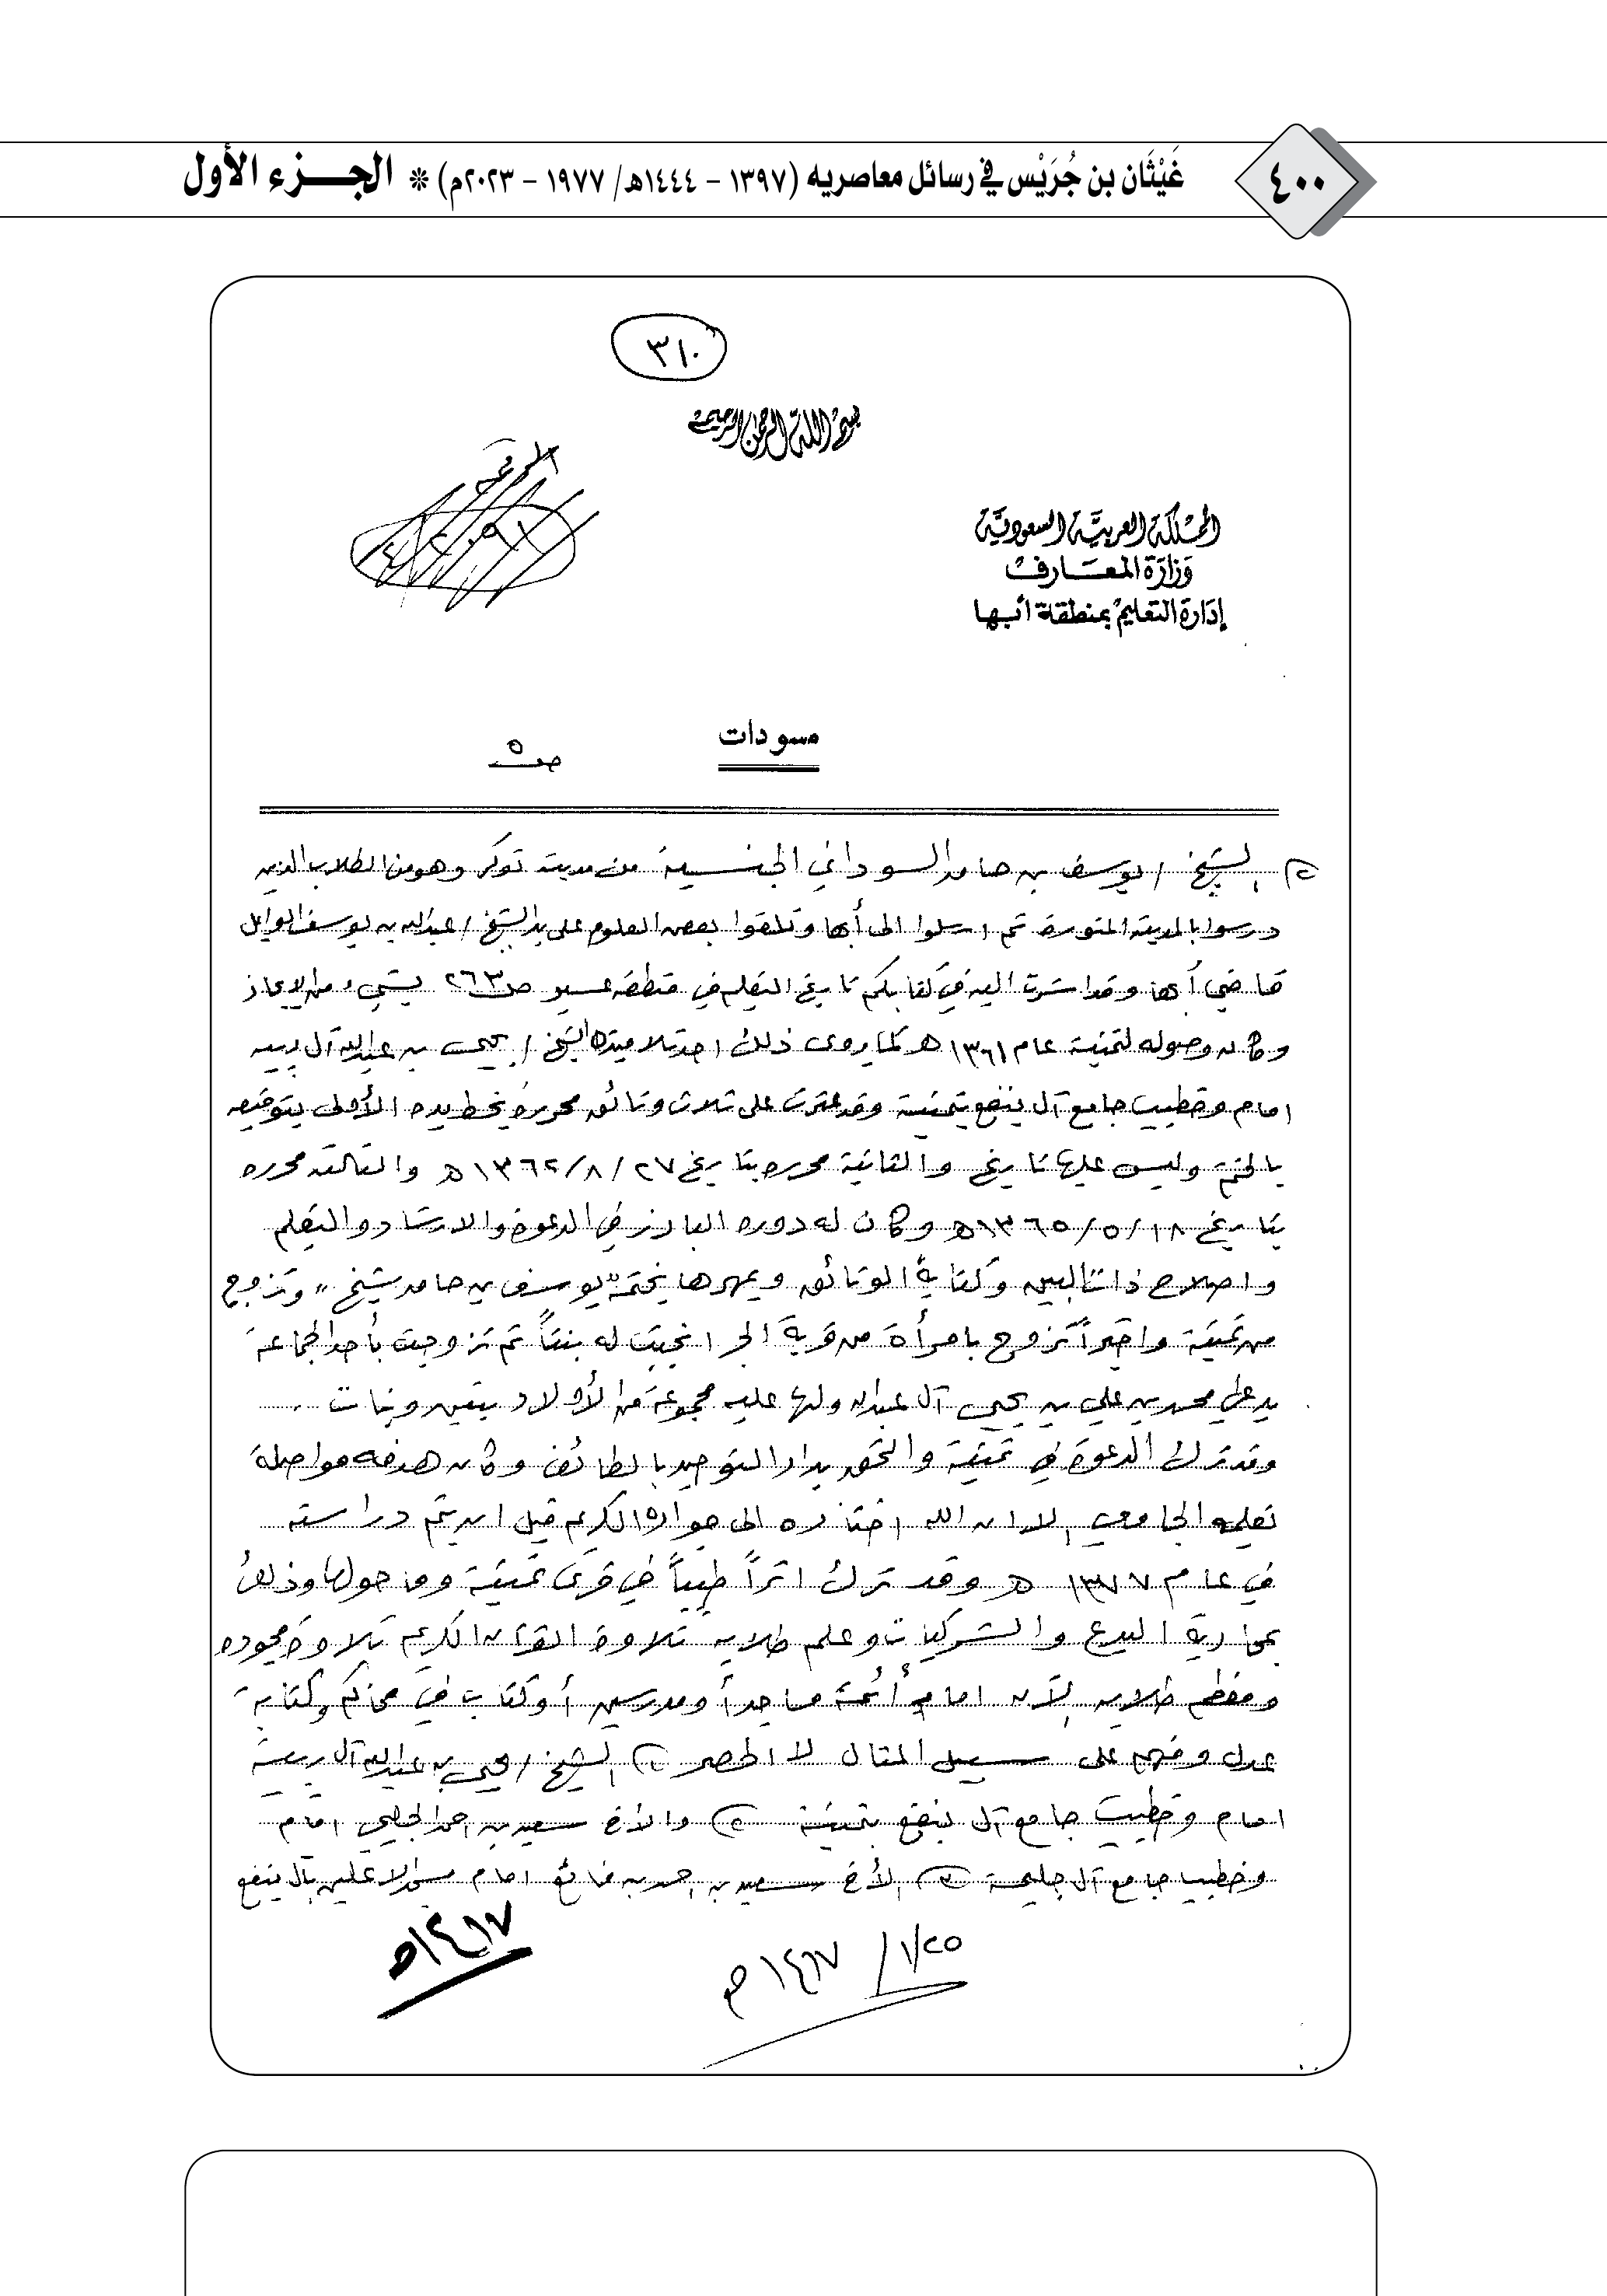 ٤٠٠
غَيْثَان بن جُرَيْس في رسائل معاصريه (١٣٩٧ - ١٤٤٤هـ/ ١٩٧٧ - ٢٠٢٣م) * الجـــزء الأول
٣١٠
بسم الله الرحمن الرحيم
المملكة العربية السعودية
وزارة المعارف
إدارة التعليم بمنطقة أبها
مسودات
ص ٥
الشيخ / يوسف بن حامد السوداني الجنسية من مدينة توكر وهو من الطلاب الذين
درسوا بالمدينة المنورة ثم ارسلوا الى أبها وتلقوا بعض العلوم على يد الشيخ / عبدالله بن يوسف الوابل
قاضي أبها وقد اشرت اليه في كتابكم تاريخ التعليم في منطقة عسير ص ٢٦٣ بشيء من الايجاز
وكان وصوله لتمنية عام ١٣٦١هـ كما يروى ذلك احد تلاميذه الشيخ / يحيى بن عبدالله آل
امام وخطيب جامع آل ينفع بتمنية وقد عثرت على ثلاث وثائق محررة بخط يده الأولى بتوقيعه
بالختم وليس عليها تاريخ والثانية محرره بتاريخ ٢٧/٨/١٣٦٢هـ والثالثة محرره
بتاريخ ١٨/٥/١٣٦٥هـ وكان له دوره البارز في الدعوة والارشاد والتعليم
واصلاح ذات البين وكتابة الوثائق ويمهرها بختمه "يوسف بن حامد شيخ" وتزوج
من تمنية واخيراً تزوج بامرأة من قرية الجر انجبت له بنتاً ثم تزوجت بأحد الجماعة
يدعى محمد بن علي بن يحيى آل عبدالله ولها عليه مجموعة من الأولاد بنين وبنات ..
وقد ترك الدعوة في تمنية والتحق بدار التوحيد بالطائف وكان هدفه مواصلة
تعليمه الجامعي إلا ان الله اختاره الى جواره الكريم قبل ان يتم دراسته
في عام ١٣٧٧هـ وقد ترك اثراً طيباً في قرى تمنية وما حولها وذلك
بمحاربة البدع والشركيات وعلم طلابه تلاوة القرآن الكريم تلاوة مجوده
ومعظم طلابه الآن أئمة مساجد أو مدرسين أو كتاب في محاكم وكتابة
عدل ومنهم على سبيل المثال لا الحصر ١) الشيخ / يحيى بن عبدالله آل
امام وخطيب جامع آل ينفع بتمنية ٢) والأخ سعيد بن احمد امام
وخطيب جامع آل جليحة ٣) الأخ سعيد بن احمد بن امام بآل ينفع
٢٥/١/١٤١٧هـ
١٤١٧هـ